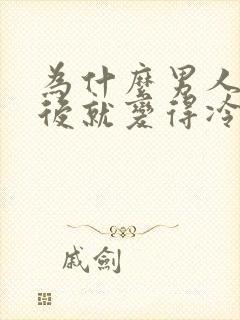 為什麼男人
後就變得冷
戚劍